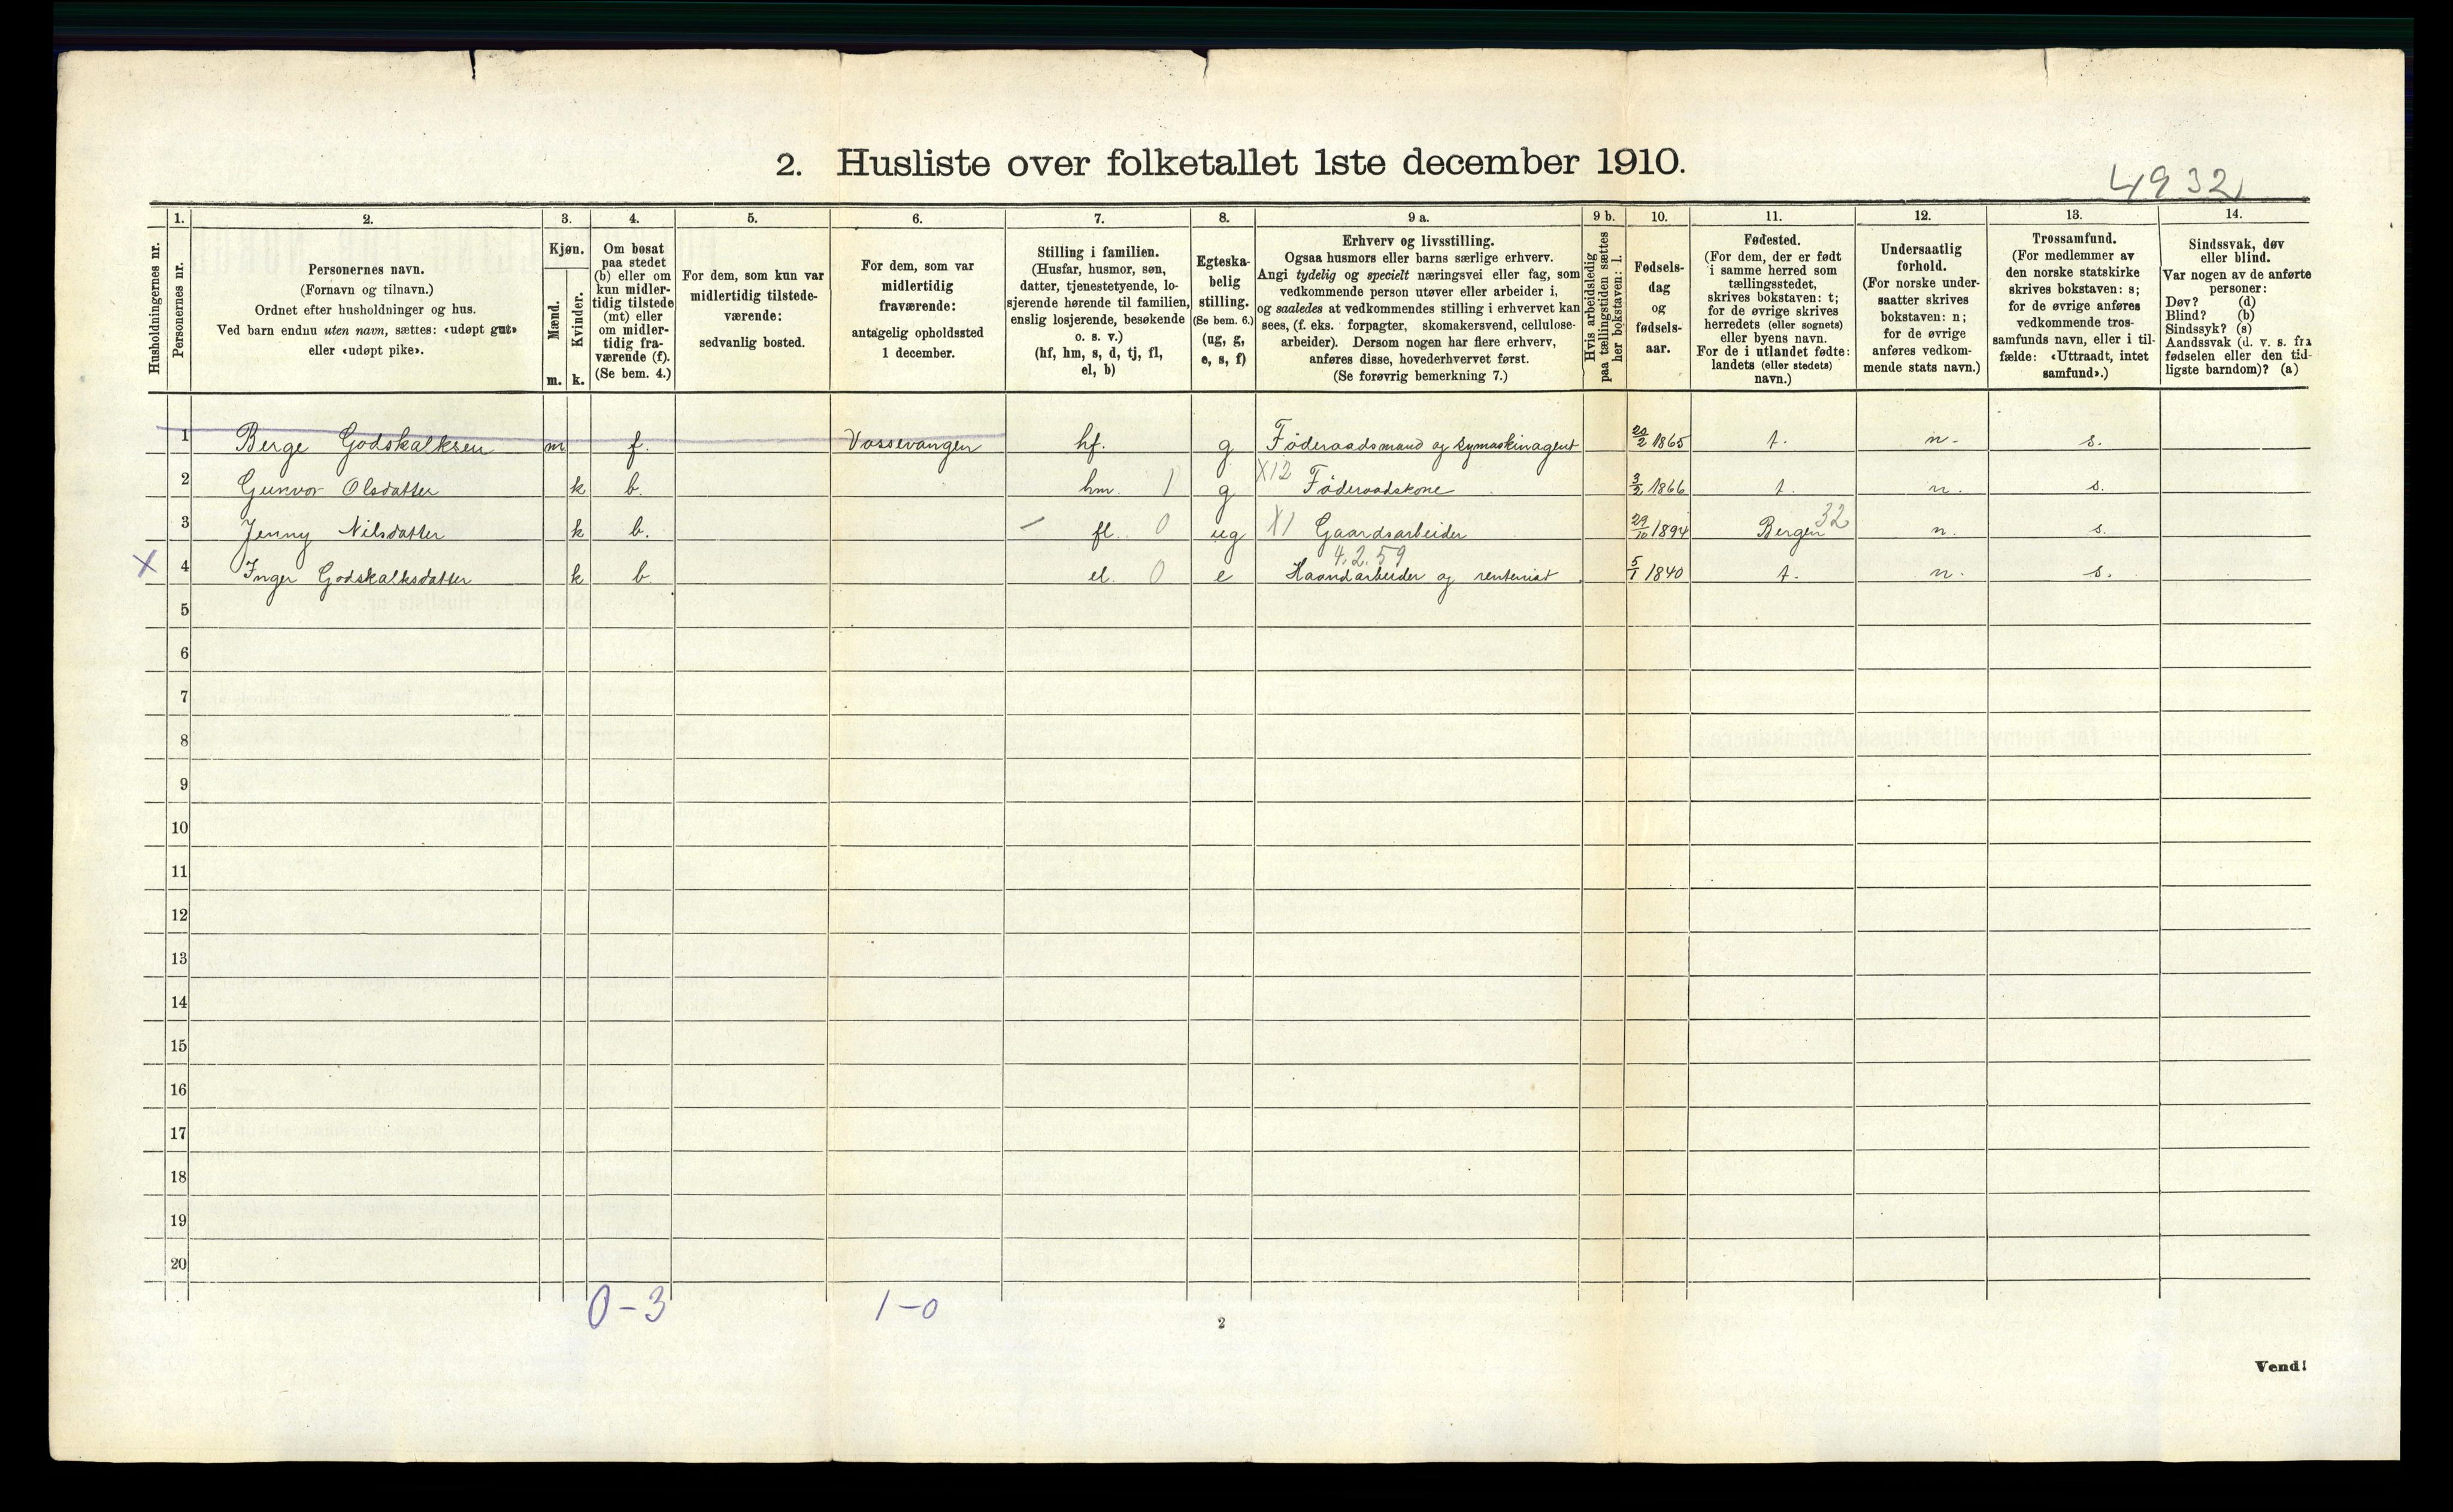 2. Husliste over folketallet 1ste december 1910.
4932
Husholdningernes nr.
1.
Personernes nr.
2.
Personernes navn.
(Fornavn og tilnavn.)
Ordnet efter husholdninger og hus.
Ved barn endnu uten navn, sættes: «udøpt gut»
eller «udøpt pike».
3.
Kjøn.
Mænd.
m.
Kvinder.
k.
4.
Om bosat
paa stedet
(b) eller om
kun midler-
tidig tilstede
(mt) eller
om midler-
tidig fra-
værende (f).
(Se bem. 4.)
5.
For dem, som kun var
midlertidig tilstede-
værende:
sedvanlig bosted.
6.
For dem, som var
midlertidig
fraværende:
antagelig opholdssted
1 december.
7.
Stilling i familien.
(Husfar, husmor, søn,
datter, tjenestetyende, lo-
sjerende hørende til familien,
enslig losjerende, besøkende
o. s. v.)
(hf, hm, s, d, tj, fl,
el, b)
8.
Egteska-
belig
stilling.
(Se bem. 6.)
(ug, g,
e, s, f)
9 a.
Erhverv og livsstilling.
Ogsaa husmors eller barns særlige erhverv.
Angi tydelig og specielt næringsvei eller fag, som
vedkommende person utøver eller arbeider i,
og saaledes at vedkommendes stilling i erhvervet kan
sees, (f. eks. forpagter, skomakersvend, cellulose-
arbeider). Dersom nogen har flere erhverv,
anføres disse, hovederhvervet først.
(Se forøvrig bemerkning 7.)
9 b.
Hvis arbeidsledig
paa tællingstiden sættes
her bokstaven: l.
10.
Fødsels-
dag
og
fødsels-
aar.
11.
Fødested.
(For dem, der er født
i samme herred som
tællingsstedet,
skrives bokstaven: t;
for de øvrige skrives
herredets (eller sognets)
eller byens navn.
For de i utlandet fødte:
landets (eller stedets)
navn.)
12.
Undersaatlig
forhold.
(For norske under-
saatter skrives
bokstaven: n;
for de øvrige
anføres vedkom-
mende stats navn.)
13.
Trossamfund.
(For medlemmer av
den norske statskirke
skrives bokstaven: s;
for de øvrige anføres
vedkommende tros-
samfunds navn, eller i til-
fælde: «Uttraadt, intet
samfund».)
14.
Sindssvak, døv
eller blind.
Var nogen av de anførte
personer:
Døv? (d)
Blind? (b)
Sindssyk? (s)
Aandssvak (d. v. s. fra
fødselen eller den tid-
ligste barndom)? (a)
1 Berge Godskalksen m f. Vossevangen hf. g Føderaadsmand og symaskinagent 20/2 1865 t. n. s.
2 Gunvor Olsdatter k b. hm. 1 g X12 Føderaadskone 3/2 1866 t. n. s.
3 Jenny Nilsdatter k b. fl. 0 ug X1 Gaardsarbeider 29/10 1894 Bergen 32 n. s.
4.2.59
X 4 Inger Godskalksdatter k b el. 0 e Haandarbeider og rentenist 5/1 1840 t. n. s.
5
6
7
8
9
10
11
12
13
14
15
16
17
18
19
20
0-3 1-0
2
Vend!